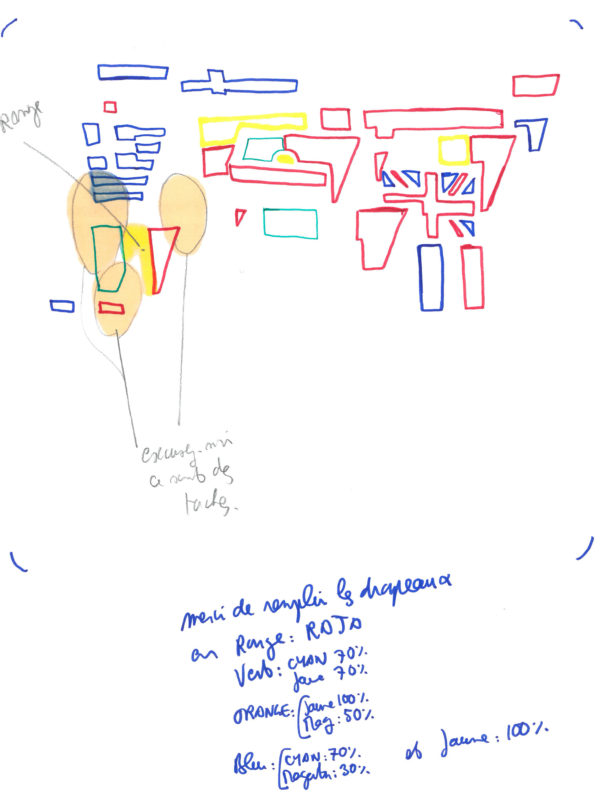 Rouge
excusez-moi
ce sont des
taches.
merci de remplir les drapeaux
en Rouge: ROJO
Vert: CYAN 70%
Jaune 70%
ORANGE: Jaune 100%
Mag: 50%
Bleu: CYAN: 70%
Magenta: 30%
et Jaune: 100%